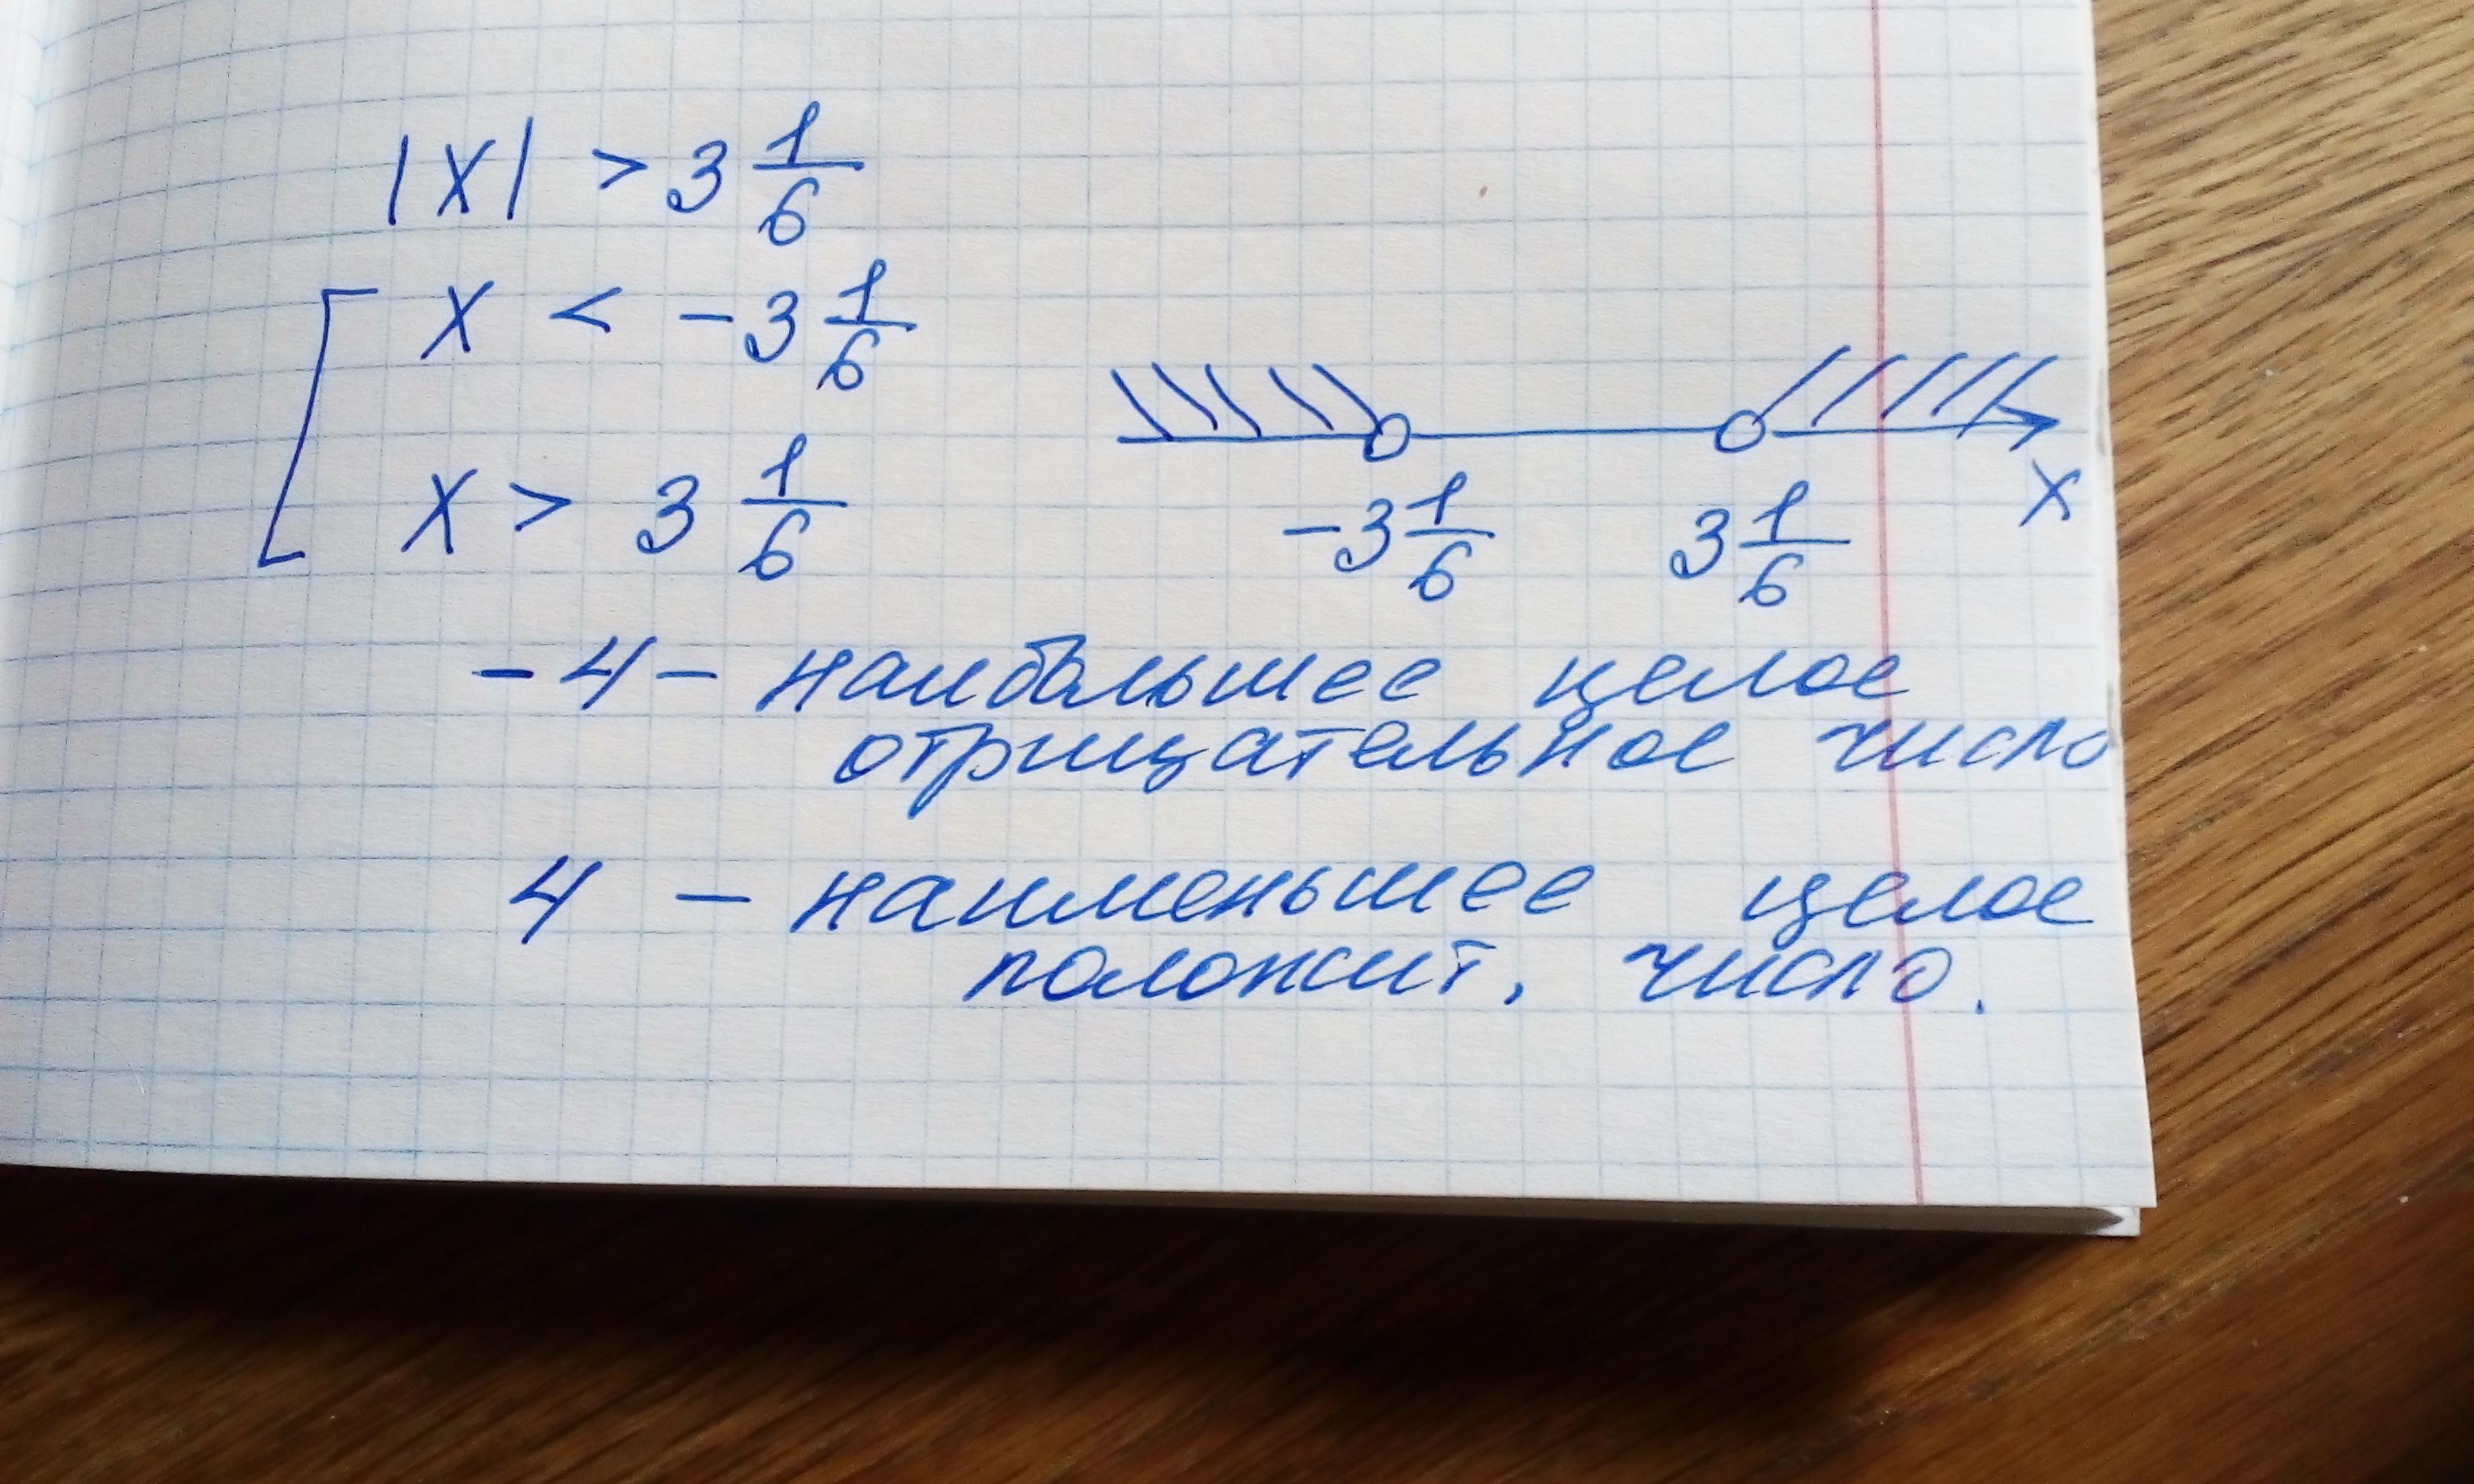 |x| > 3 1/6
x < -3 1/6
x > 3 1/6
-3 1/6 3 1/6 x
-4 - наибольшее целое
отрицательное число
4 - наименьшее целое
положит. число.